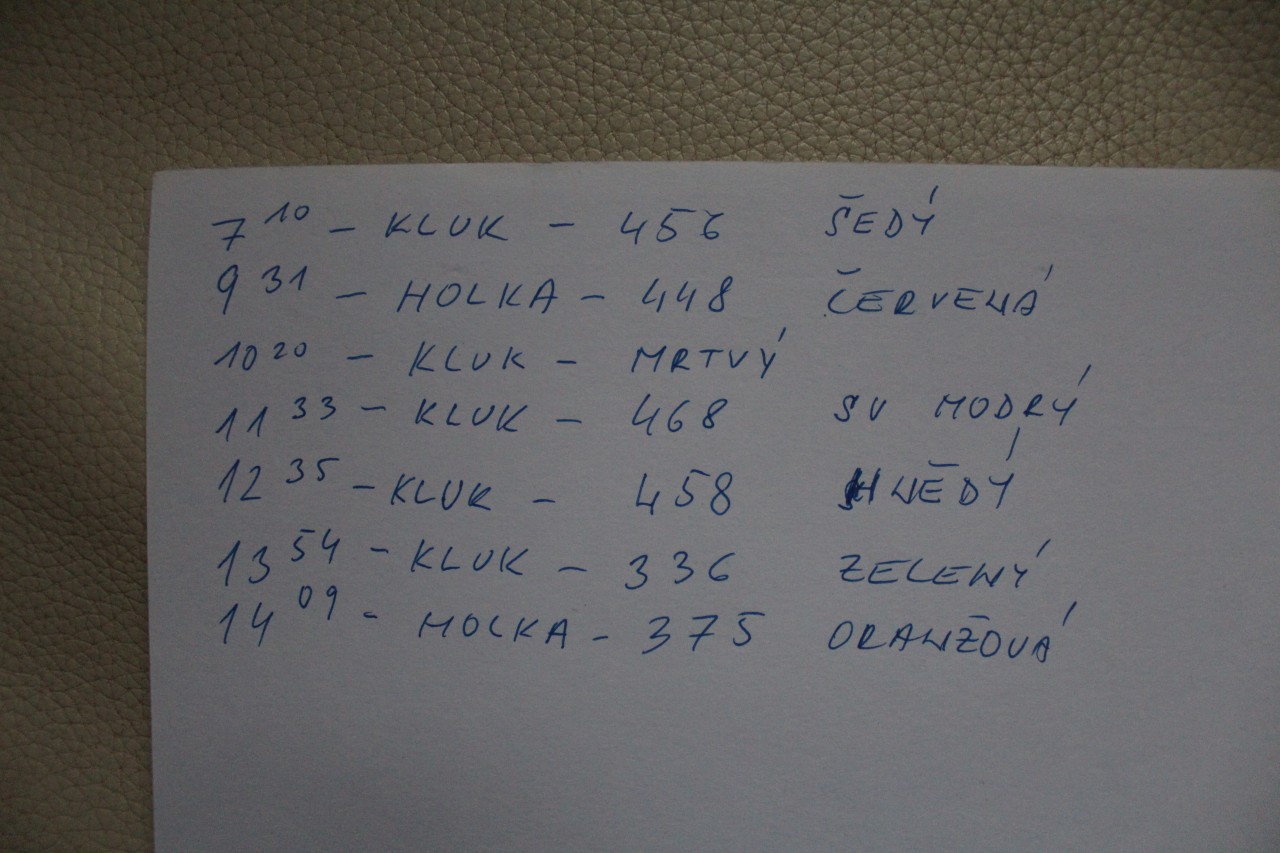 7 10 - KLUK - 456 ŠEDÝ
9 31 - HOLKA - 448 ČERVENÁ
10 20 - KLUK - MRTVÝ
11 33 - KLUK - 468 SV MODRÝ
12 35 - KLUK - 458 HNĚDÝ
13 54 - KLUK - 336 ZELENÝ
14 09 - HOLKA - 375 ORANŽOVÁ